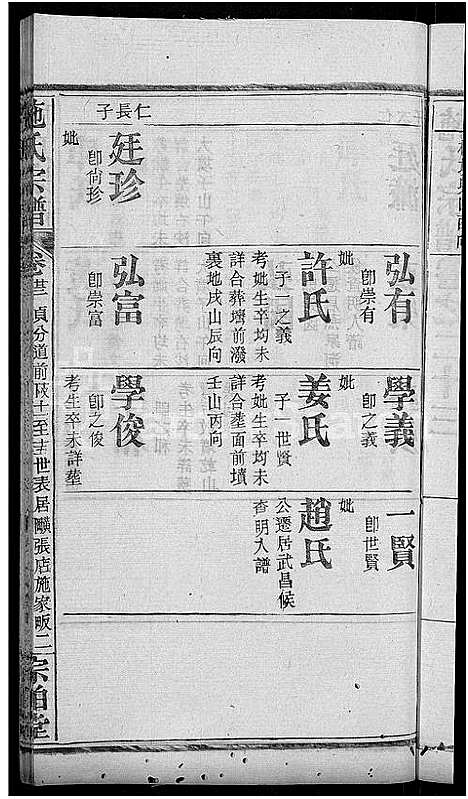 弘有
卽崇有
妣
許氏
子一之義
考妣生卒均未
詳合葬壋前潑
裏地戌山辰向
學義
卽之義
妣
姜氏
子一世賢
考妣生卒均未
詳合塟面前墳
壬山丙向
一賢
卽世賢
妣
趙氏
公遷居武昌候
查明入譜
仁長子
廷珍
卽尙珍
妣
弘富
卽崇富
學俊
卽之俊
考生卒未詳塟
施氏宗譜
卷廿三 貞分道前 至 世表居 張店施家畈二
宗伯堂